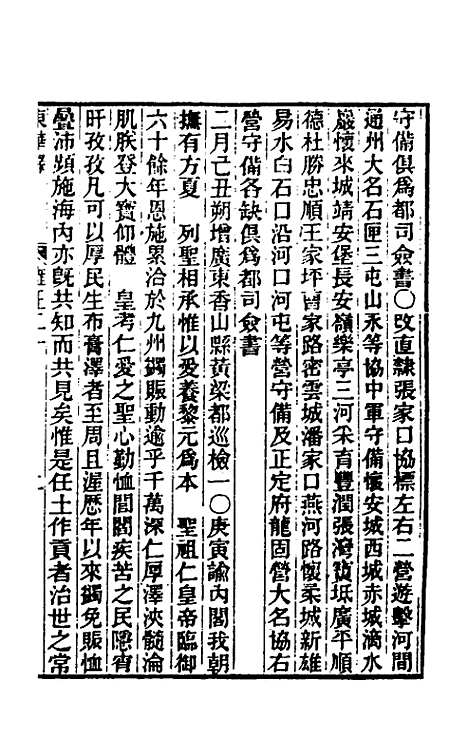 守備俱爲都司僉書〇改直隸張家口協標左右二營遊擊河間
通州大名石匣三屯山永等協中軍守備懷安城西城赤城滴水
巖懷來城靖安堡長安嶺樂亭三河采育豐潤張灣寶坻廣平順
德杜勝忠順王家坪富家路密雲城潘家口燕河路懷柔城新雄
易水白石口沿河口河屯等營守備及正定府龍固營大名協右
營守備各缺俱爲都司僉書
二月己丑朔增廣東香山縣黃梁都巡檢一〇庚寅諭內閣我朝
撫有方夏 列聖相承惟以愛養黎元爲本 聖祖仁皇帝臨御
六十餘年恩施累洽於九州蠲賑動逾乎千萬深仁厚澤浹髓淪
肌朕登大寶仰體 皇考仁愛之聖心勤恤閭閻疾苦之民隱宵
旰孜孜凡可以厚民生布膏澤者至周且渥歷年以來蠲免賑恤
疊沛頻施海內亦旣共知而共見矣惟是任土作貢者治世之常
東華錄